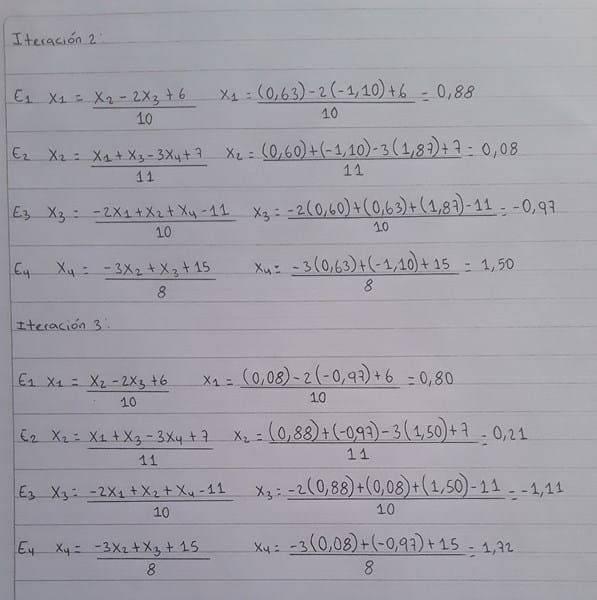 Iteración 2:
E1 x1 = x2 - 2x3 + 6 / 10 x1 = (0,63) - 2(-1,10) + 6 / 10 = 0,88
E2 x2 = x1 + x3 - 3x4 + 7 / 11 x2 = (0,60) + (-1,10) - 3(1,87) + 7 / 11 = 0,08
E3 x3 = -2x1 + x2 + x4 - 11 / 10 x3 = -2(0,60) + (0,63) + (1,87) - 11 / 10 = -0,97
E4 x4 = -3x2 + x3 + 15 / 8 x4 = -3(0,63) + (-1,10) + 15 / 8 = 1,50
Iteración 3:
E1 x1 = x2 - 2x3 + 6 / 10 x1 = (0,08) - 2(-0,97) + 6 / 10 = 0,80
E2 x2 = x1 + x3 - 3x4 + 7 / 11 x2 = (0,88) + (-0,97) - 3(1,50) + 7 / 11 = 0,21
E3 x3 = -2x1 + x2 + x4 - 11 / 10 x3 = -2(0,88) + (0,08) + (1,50) - 11 / 10 = -1,11
E4 x4 = -3x2 + x3 + 15 / 8 x4 = -3(0,08) + (-0,97) + 15 / 8 = 1,72